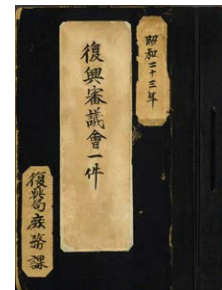 昭和二十三年
復興審議會一件
復興局庶務課